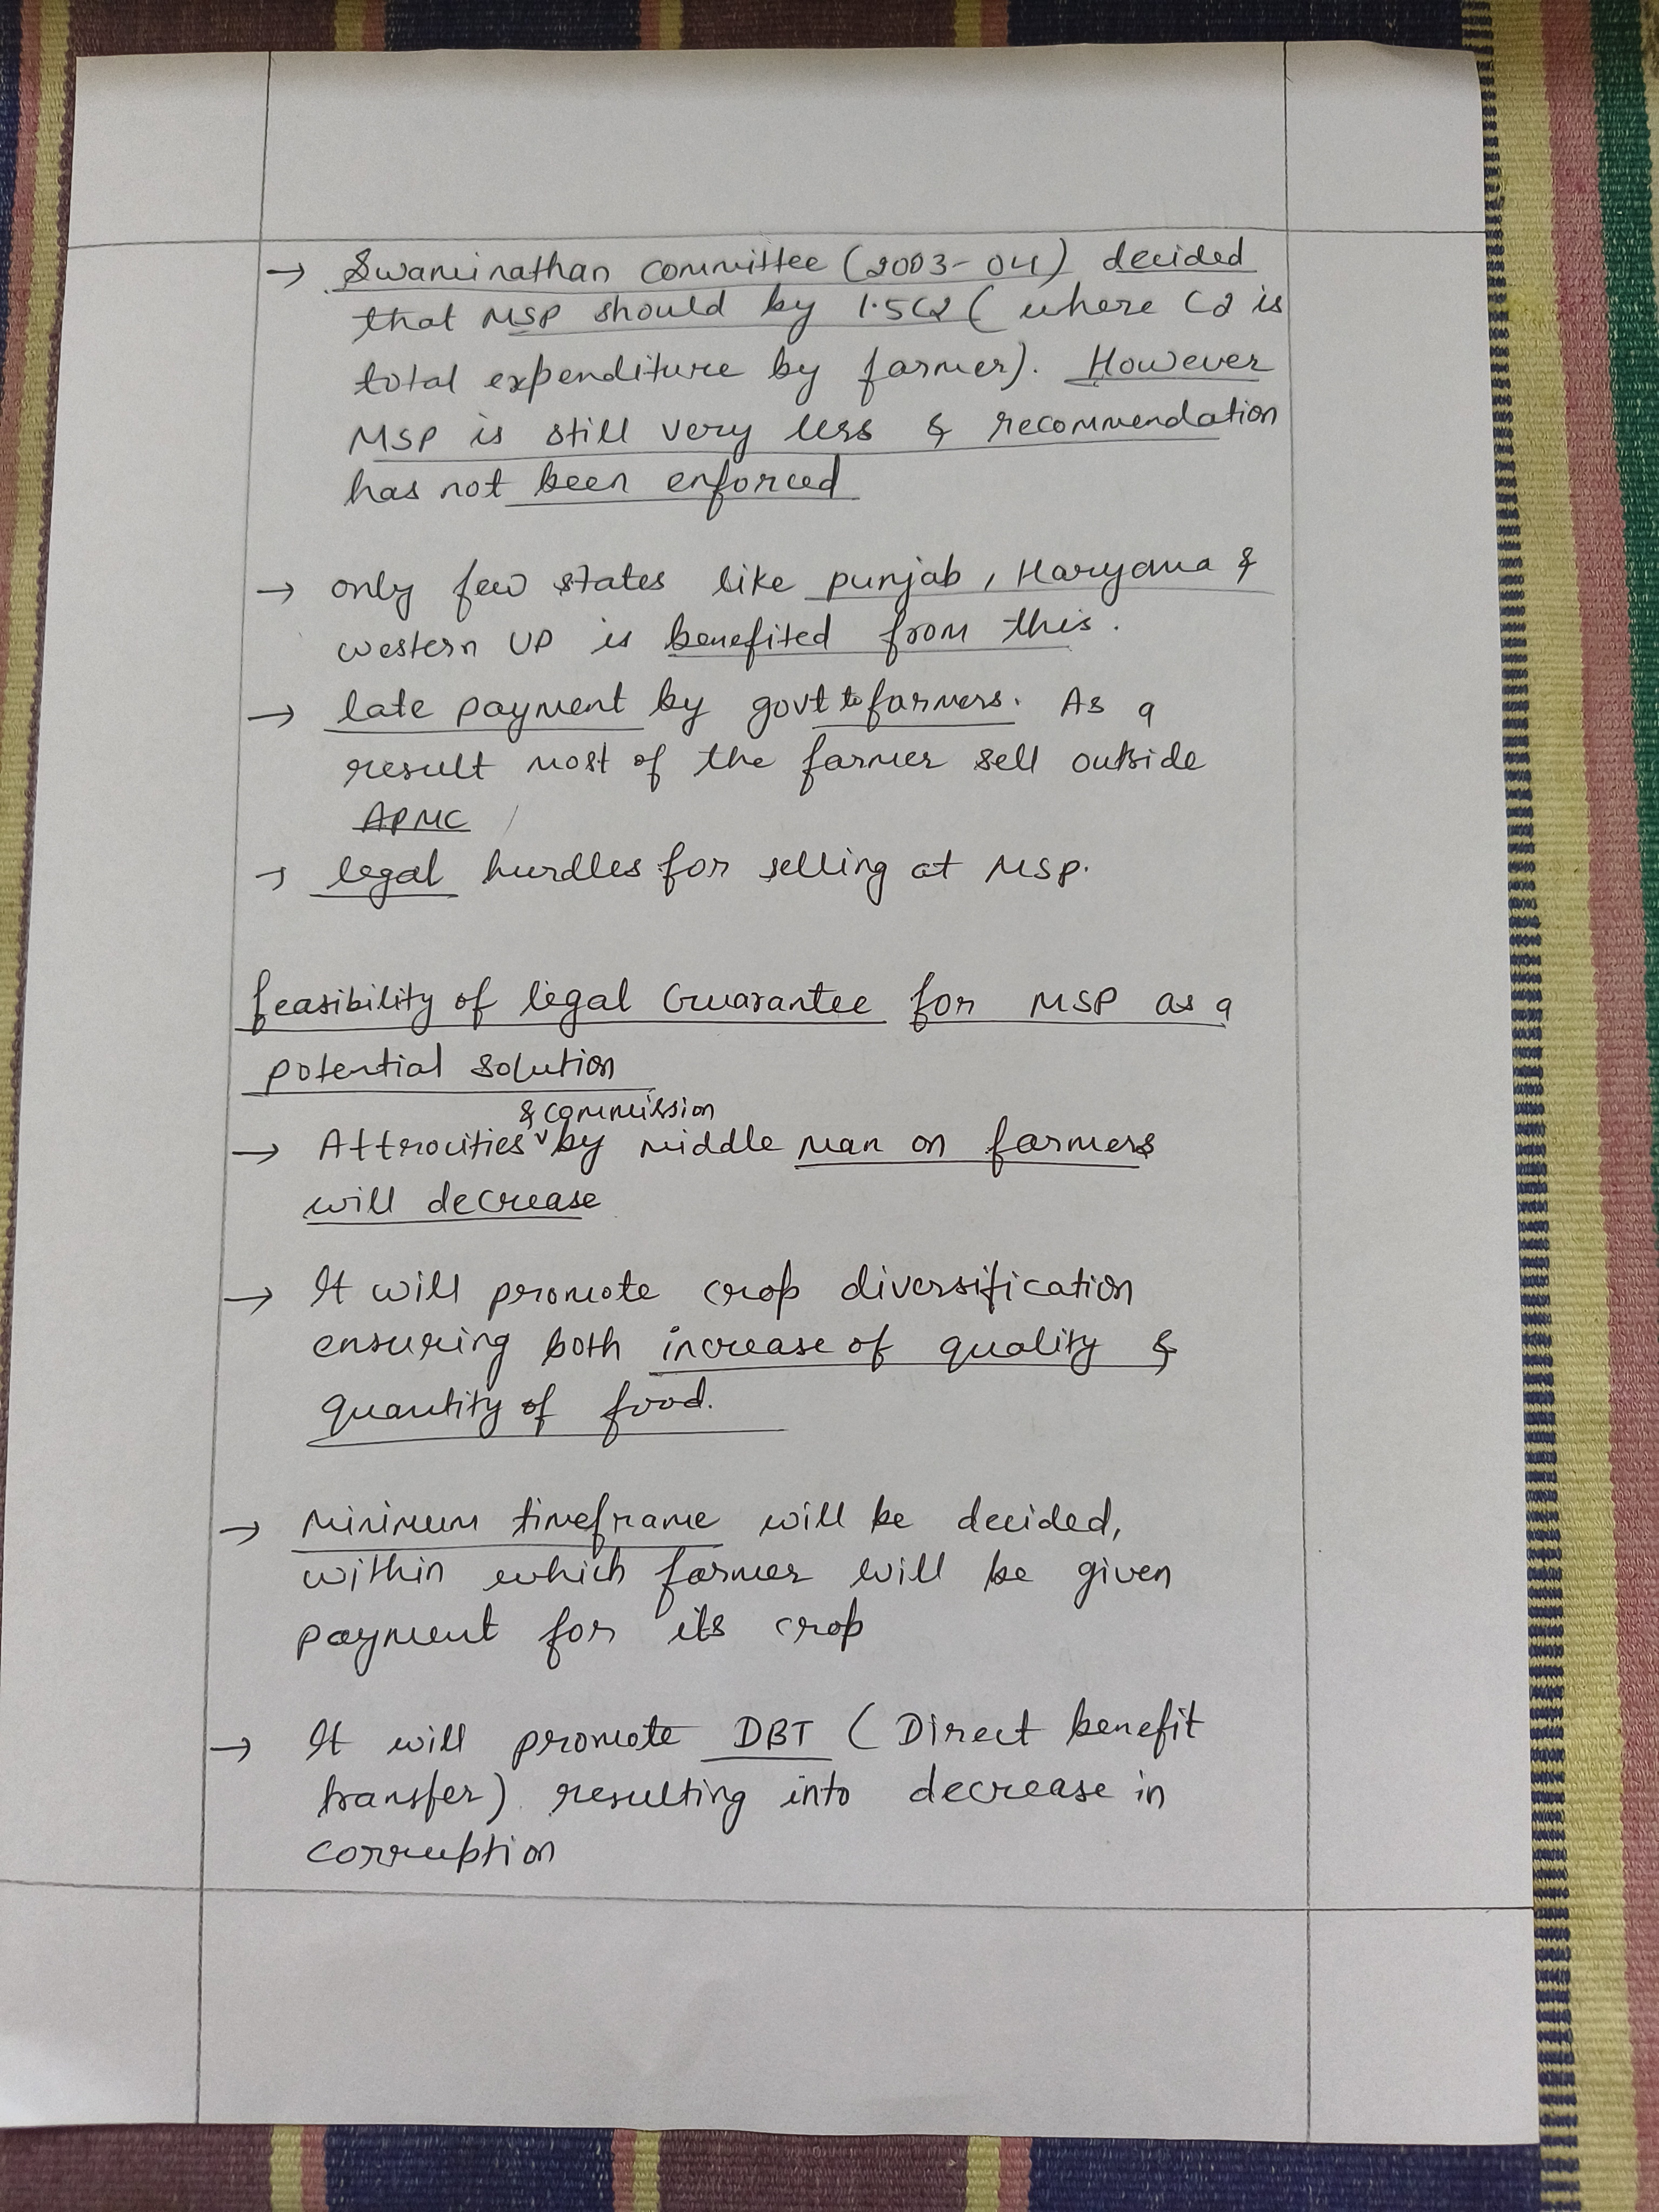 → Swaminathan committee (2003-04) decided
that MSP should by 1.5C2 (where C2 is
total expenditure by farmer). However
MSP is still very less & recommendation
has not been enforced
→ only few states like punjab, Haryana &
western UP is benefited from this.
→ late payment by govt to farmers. As a
result most of the farmer sell outside
APMC
→ legal hurdles for selling at MSP.
feasibility of legal Guarantee for MSP as a
potential solution
& commission
→ Attrocities by middle man on farmers
will decrease
→ It will promote crop diversification
ensuring both increase of quality &
quantity of food.
→ Minimum timeframe will be decided,
within which farmer will be given
payment for its crop
→ It will promote DBT (Direct benefit
transfer) resulting into decrease in
corruption